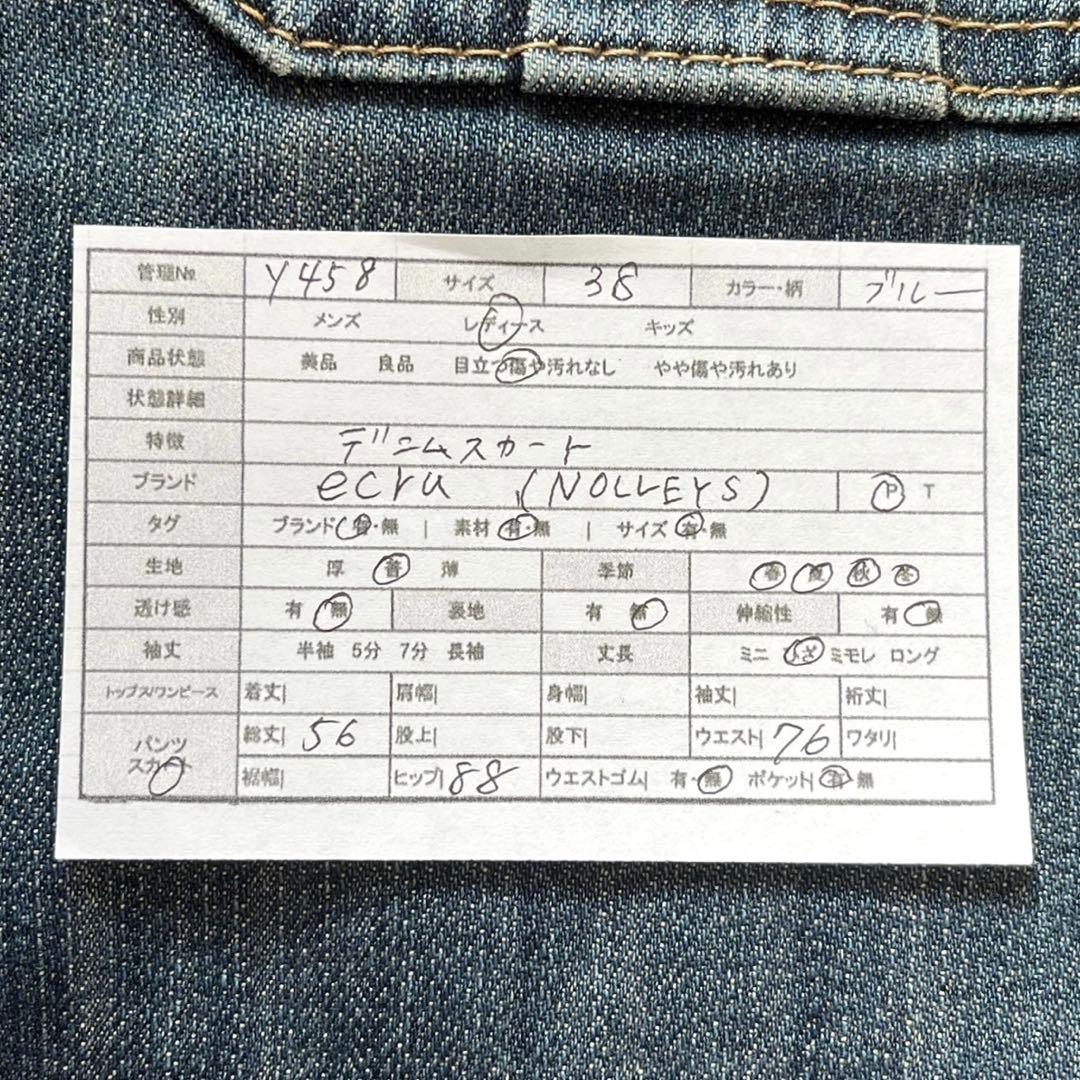 管理№ Y458 サイズ 38 カラー・柄 ブルー
性別 メンズ レディース キッズ
商品状態 美品 良品 目立つ傷や汚れなし やや傷や汚れあり
状態詳細
特徴 デニムスカート
ブランド ecru (NOLLEYS) P T
タグ ブランド 有・無 | 素材 有・無 | サイズ 有・無
生地 厚 普 薄 季節 春 夏 秋 冬
透け感 有 無 裏地 有 無 伸縮性 有 無
袖丈 半袖 5分 7分 長袖 丈長 ミニ ひざ ミモレ ロング
トップス/ワンピース 着丈| 肩幅| 身幅| 袖丈| 裄丈|
パンツ スカート 総丈| 56 股上| 股下| ウエスト| 76 ワタリ|
裾幅| ヒップ| 88 ウエストゴム| 有・無 ポケット| 有・無